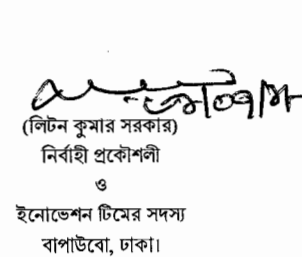 (লিটন কুমার সরকার)
নির্বাহী প্রকৌশলী
ও
ইনোভেশন টিমের সদস্য
বাপাউবো, ঢাকা।